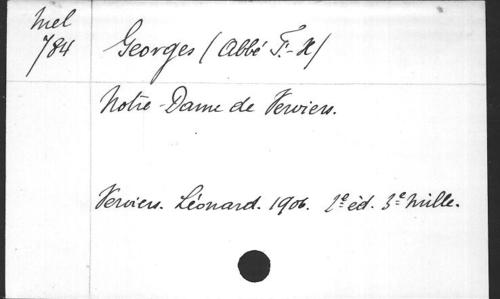 Mel
784
Georges (Abbé F.-X)
Notre-Dame de Verviers.
Verviers. Léonard. 1906. 2e éd. 3e mille.